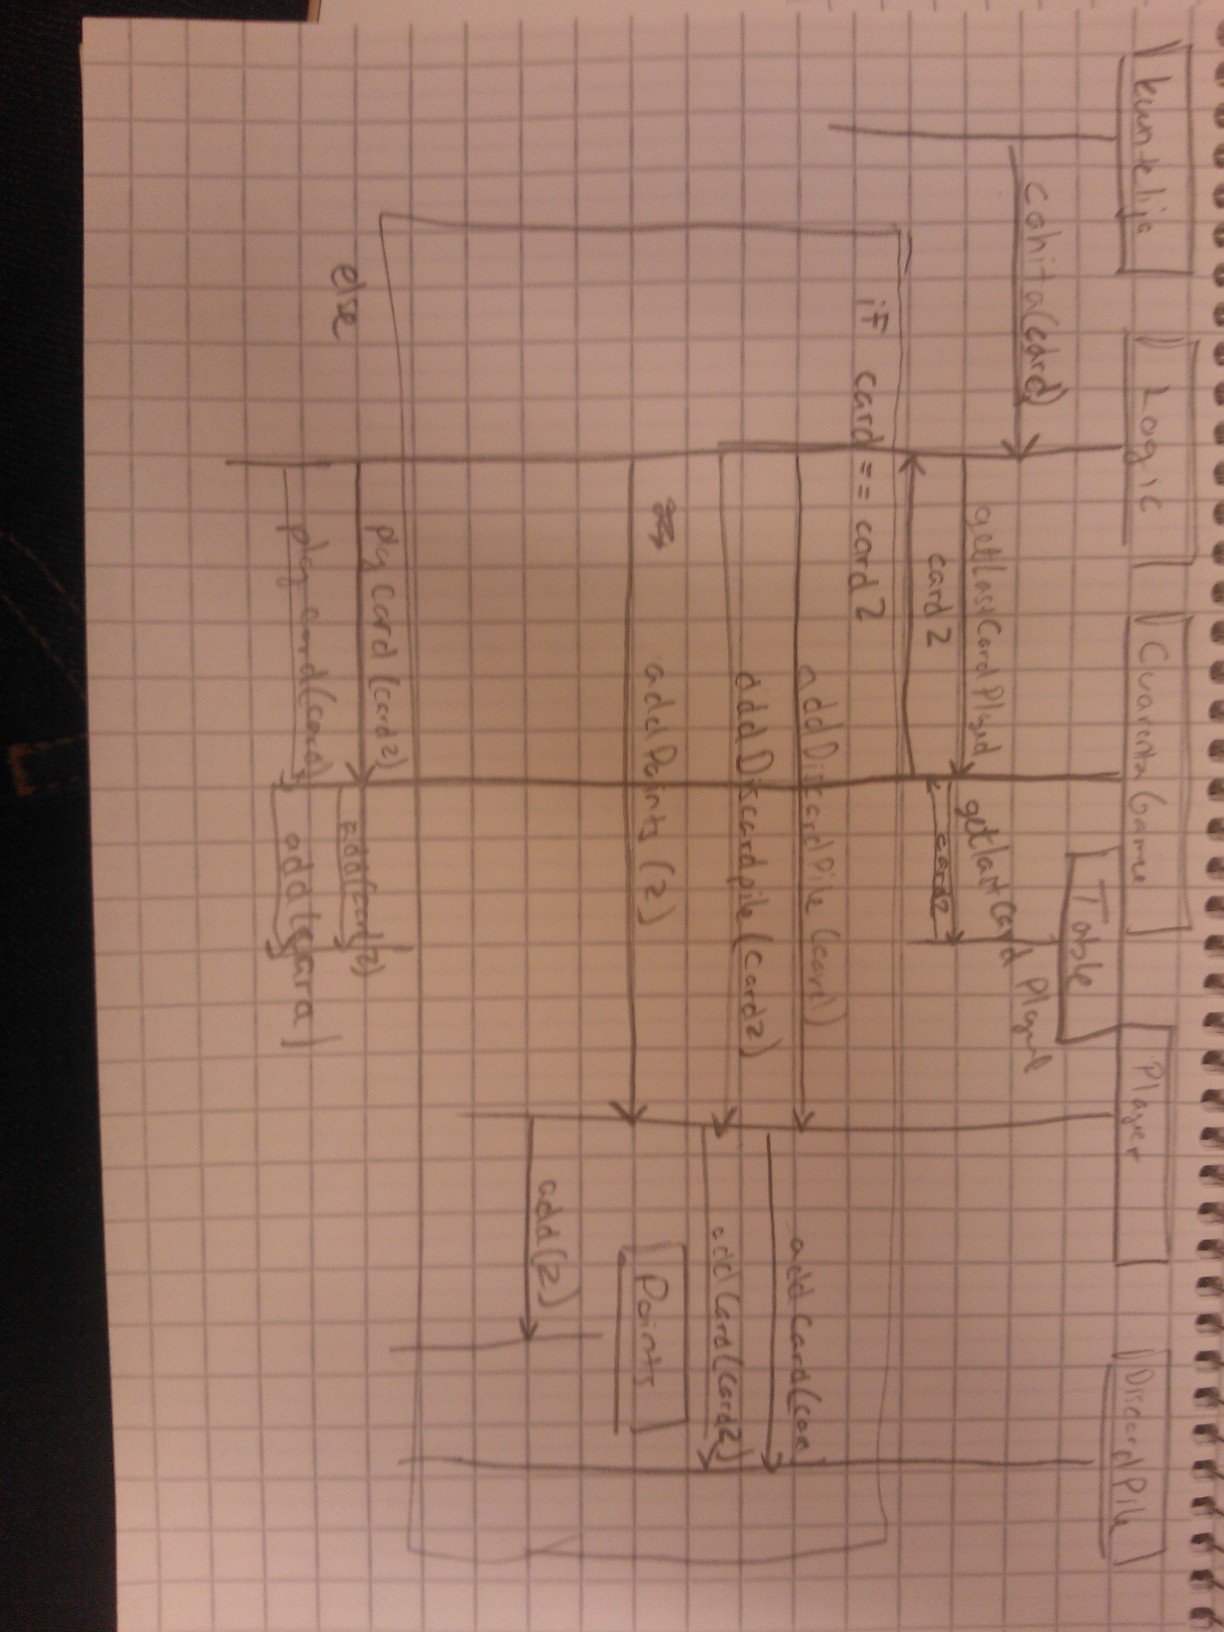 kuuntelija
Logic
CuarentaGame
Table
Player
DiscardPile
cahita(card)
getLastCardPlayed
getlastcardPlayed
card2
card2
if card == card2
addDiscardPile(card)
addCard(car
addDiscardpile(card2)
addCard(card2)
addPoints(2)
Points
add(2)
else
plyCard(card2)
add(card2)
play card(card)
add(cara)